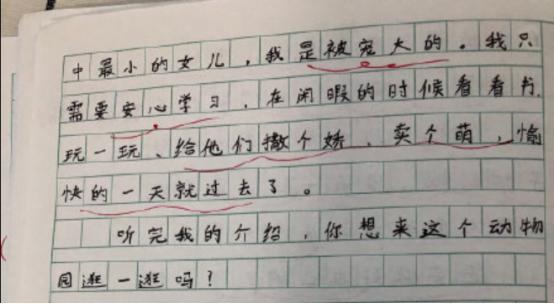 中最小的女儿，我是被宠大的。我只
需要安心学习，在闲暇的时候看看书、
玩一玩、给他们撒个娇、卖个萌，愉
快的一天就过去了。
听完我的介绍，你想来这个动物
园逛一逛吗？